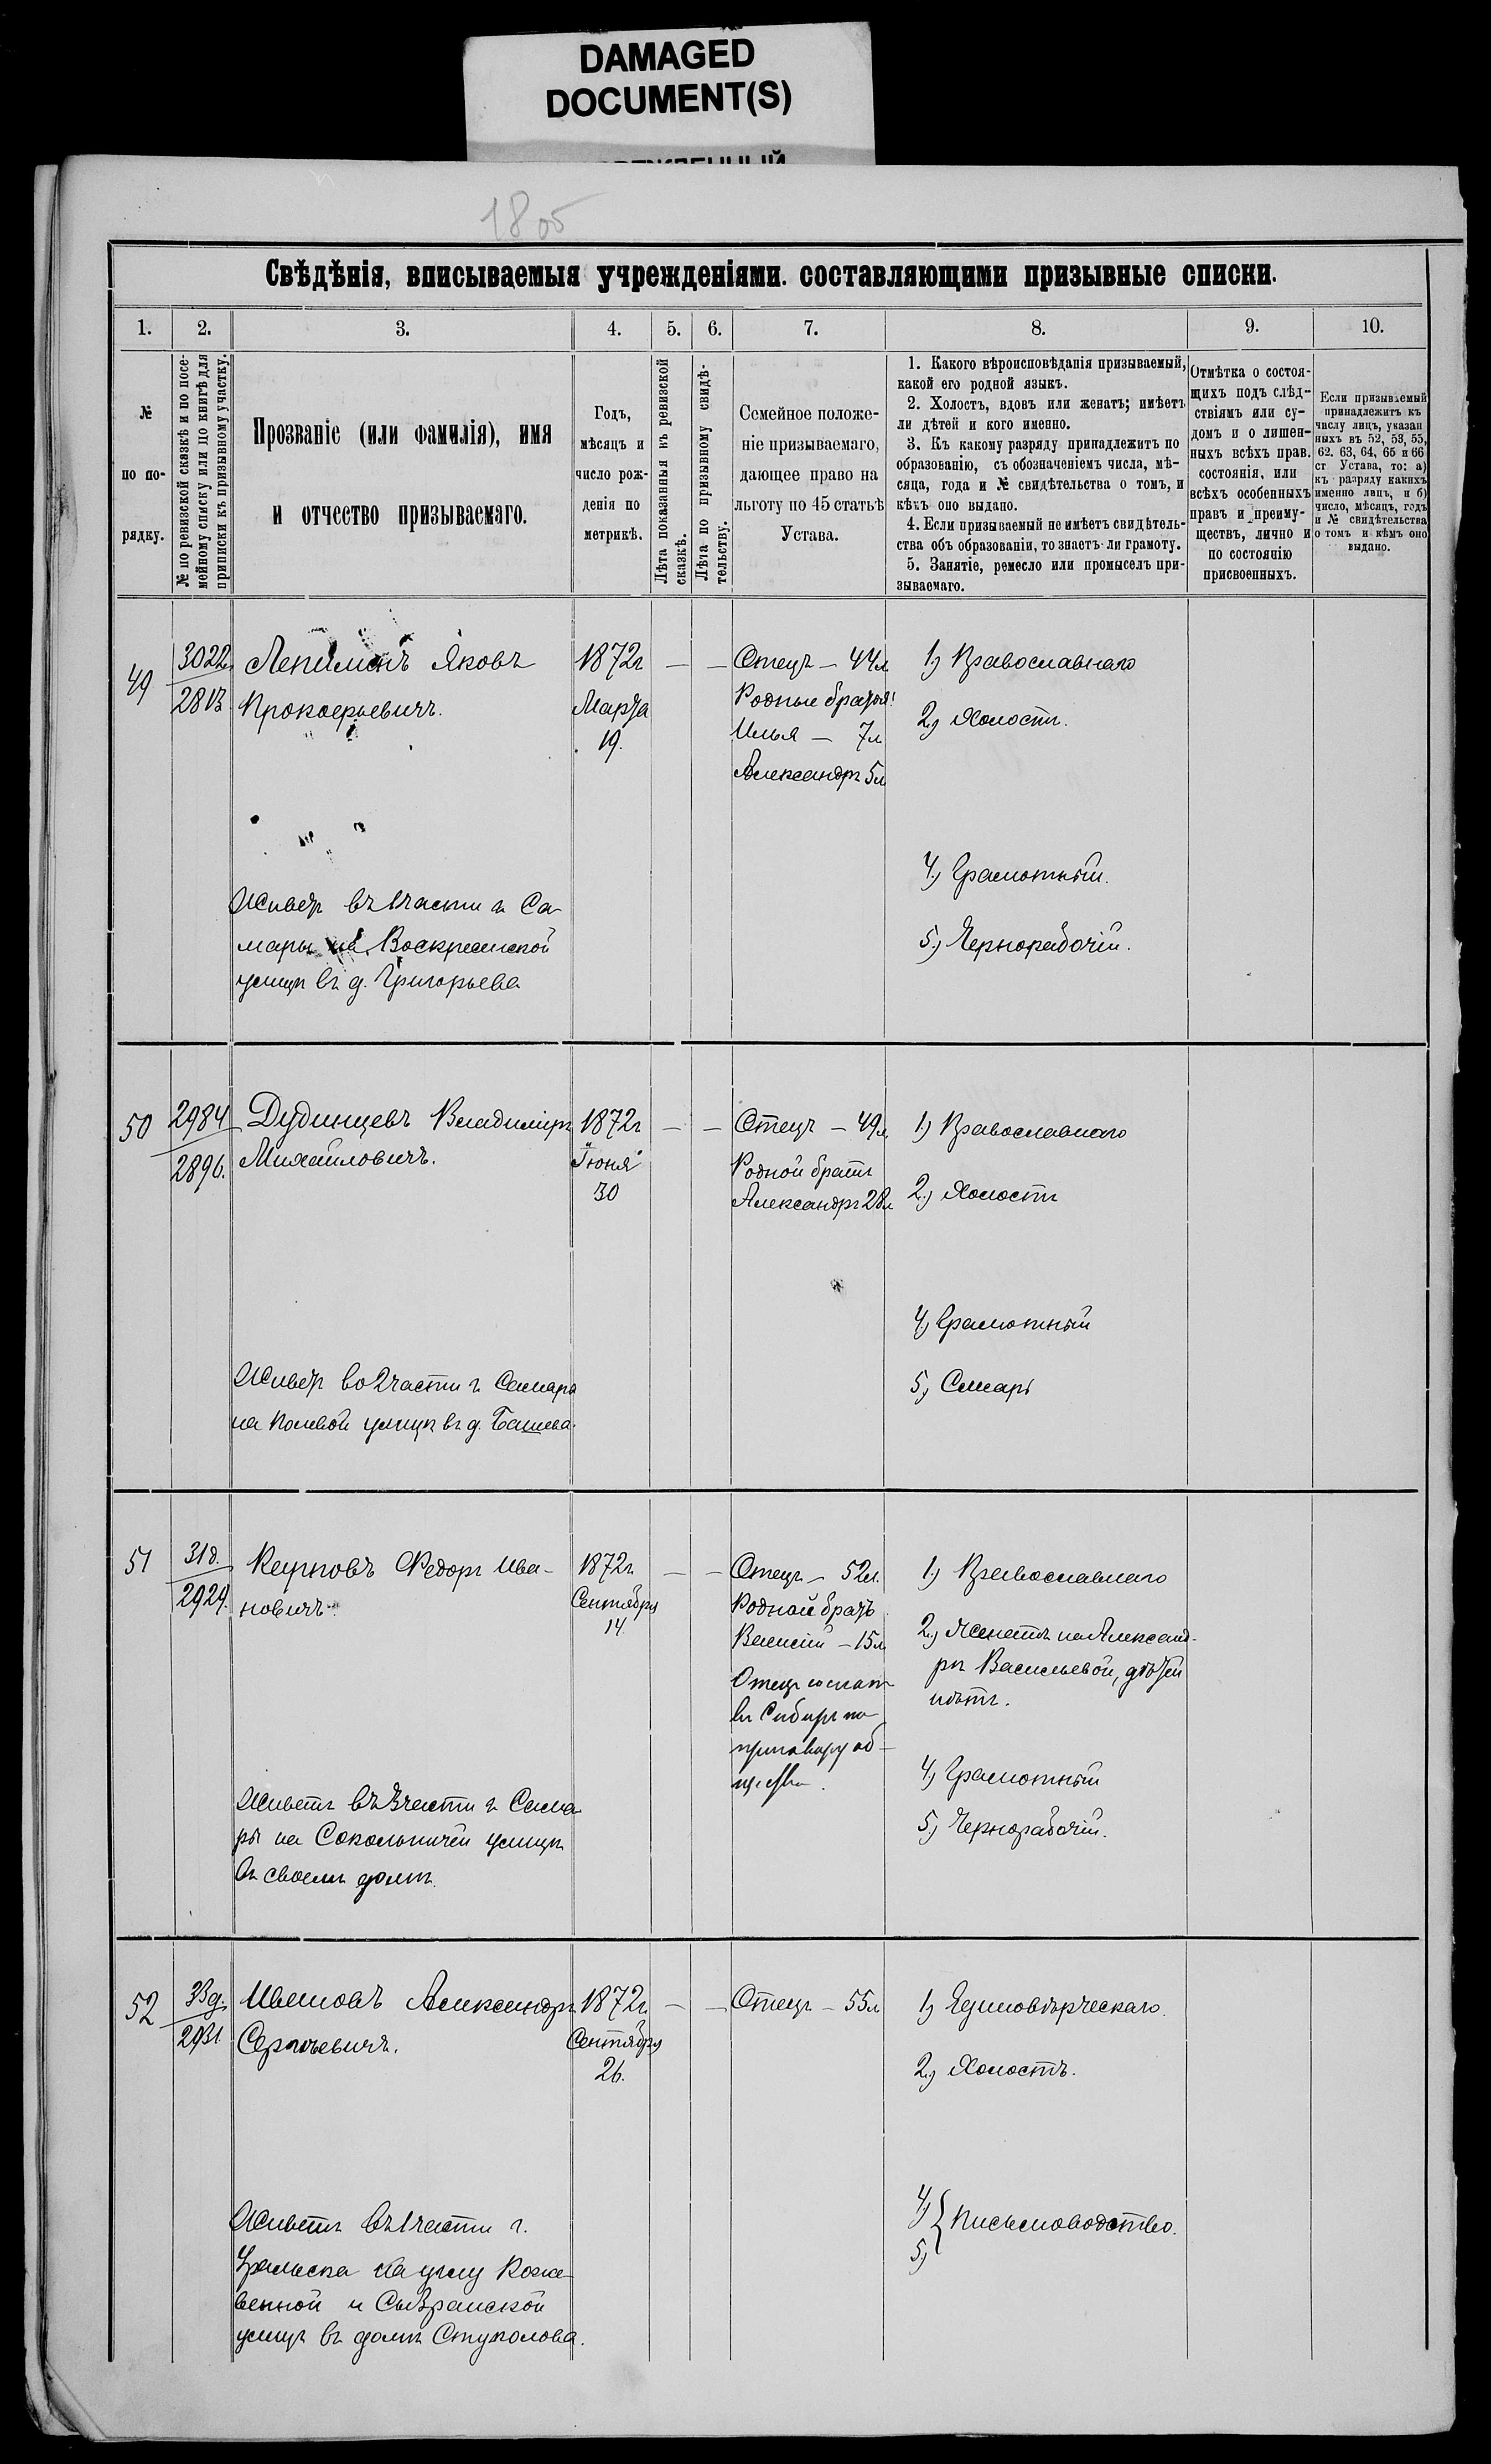 DAMAGED
DOCUMENT(S)
1805
Свѣдѣнія, вписываемыя учрежденіями. составляющими призывные списки.
1. 2. 3. 4. 5. 6. 7. 8. 9. 10.
№
по по-
рядку.
№ по ревизской сказкѣ и по посе-
мейному списку или по книгѣ для
приписки къ призывному участку.
Прозваніе (или фамилія), имя
и отчество призываемаго.
Годъ,
мѣсяцъ и
число рож-
денія по
метрикѣ.
Лѣта показанныя въ ревизской
сказкѣ.
Лѣта по призывному свидѣ-
тельству.
Семейное положе-
ніе призываемаго,
дающее право на
льготу по 45 статьѣ
Устава.
1. Какого вѣроисповѣданія призываемый,
какой его родной языкъ.
2. Холостъ, вдовъ или женатъ; имѣетъ
ли дѣтей и кого именно.
3. Къ какому разряду принадлежитъ по
образованію, съ обозначеніемъ числа, мѣ-
сяца, года и № свидѣтельства о томъ, и
кѣмъ оно выдано.
4. Если призываемый не имѣетъ свидѣтель-
ства объ образованіи, то знаетъ ли грамоту.
5. Занятіе, ремесло или промыселъ при-
зываемаго.
Отмѣтка о состоя-
щихъ подъ слѣд-
ствіямъ или су-
домъ и о лишен-
ныхъ всѣхъ прав.
состоянія, или
всѣхъ особенныхъ
правъ и преиму-
ществъ, лично и
по состоянію
присвоенныхъ.
Если призываемый
принадлежитъ къ
числу лицъ, указан
ныхъ въ 52, 53, 55,
62. 63, 64, 65 и 66
ст Устава, то: а)
къ разряду какихъ
именно лицъ, и б)
число, мѣсяцъ, годъ
и № свидѣтельства
о томъ и кѣмъ оно
выдано.
49
3022
2813
Яковъ
Прокофьевичъ.
1872г
Марта
19.
— —
Отецъ — 44л
Родные братья:
Илья — 7л
Александръ 5л
1) Православнаго
2) Холостъ.
4.) Грамотный.
5.) Чернорабочій.
Живетъ въ 1 части г. Са-
мары на Воскресенской
улицѣ въ д. Григорьева
50
2984
2896.
Дудинцевъ Владиміръ
Михайловичъ.
1872г
Іюня
30
— —
Отецъ — 49л
Родной братъ
Александръ 28л
1.) Православнаго
2.) Холостъ
4.) Грамотный
5.) Слесарь
Живетъ во 2 части г. Самары
на Полевой улицѣ въ д.
51
31д.
2929.
Карповъ Федоръ Ива-
новичъ.
1872г.
Сентября
14.
— —
Отецъ — 52л.
Родной братъ
Василій — 15л
Отецъ сосланъ
въ Сибирь по
приговору об-
щества.
1.) Православнаго
2.) Женатъ на Александ-
рѣ Васильевой, дѣтей
нѣтъ.
4.) Грамотный
5.) Чернорабочій.
Живетъ въ 3 части г. Сама-
ры на Сокольничей улицѣ
въ своемъ домѣ.
52
33д.
2931
Ивановъ Александръ
Сергѣевичъ.
1872г.
Сентября
26.
— —
Отецъ — 55л
1.) Единовѣрческаго.
2.) Холостъ.
4.)
5.) Письмоводство.
Живетъ въ 1 части г.
Уральска на углу Коже-
венной и Сызранской
улицъ въ домѣ Стуколова.